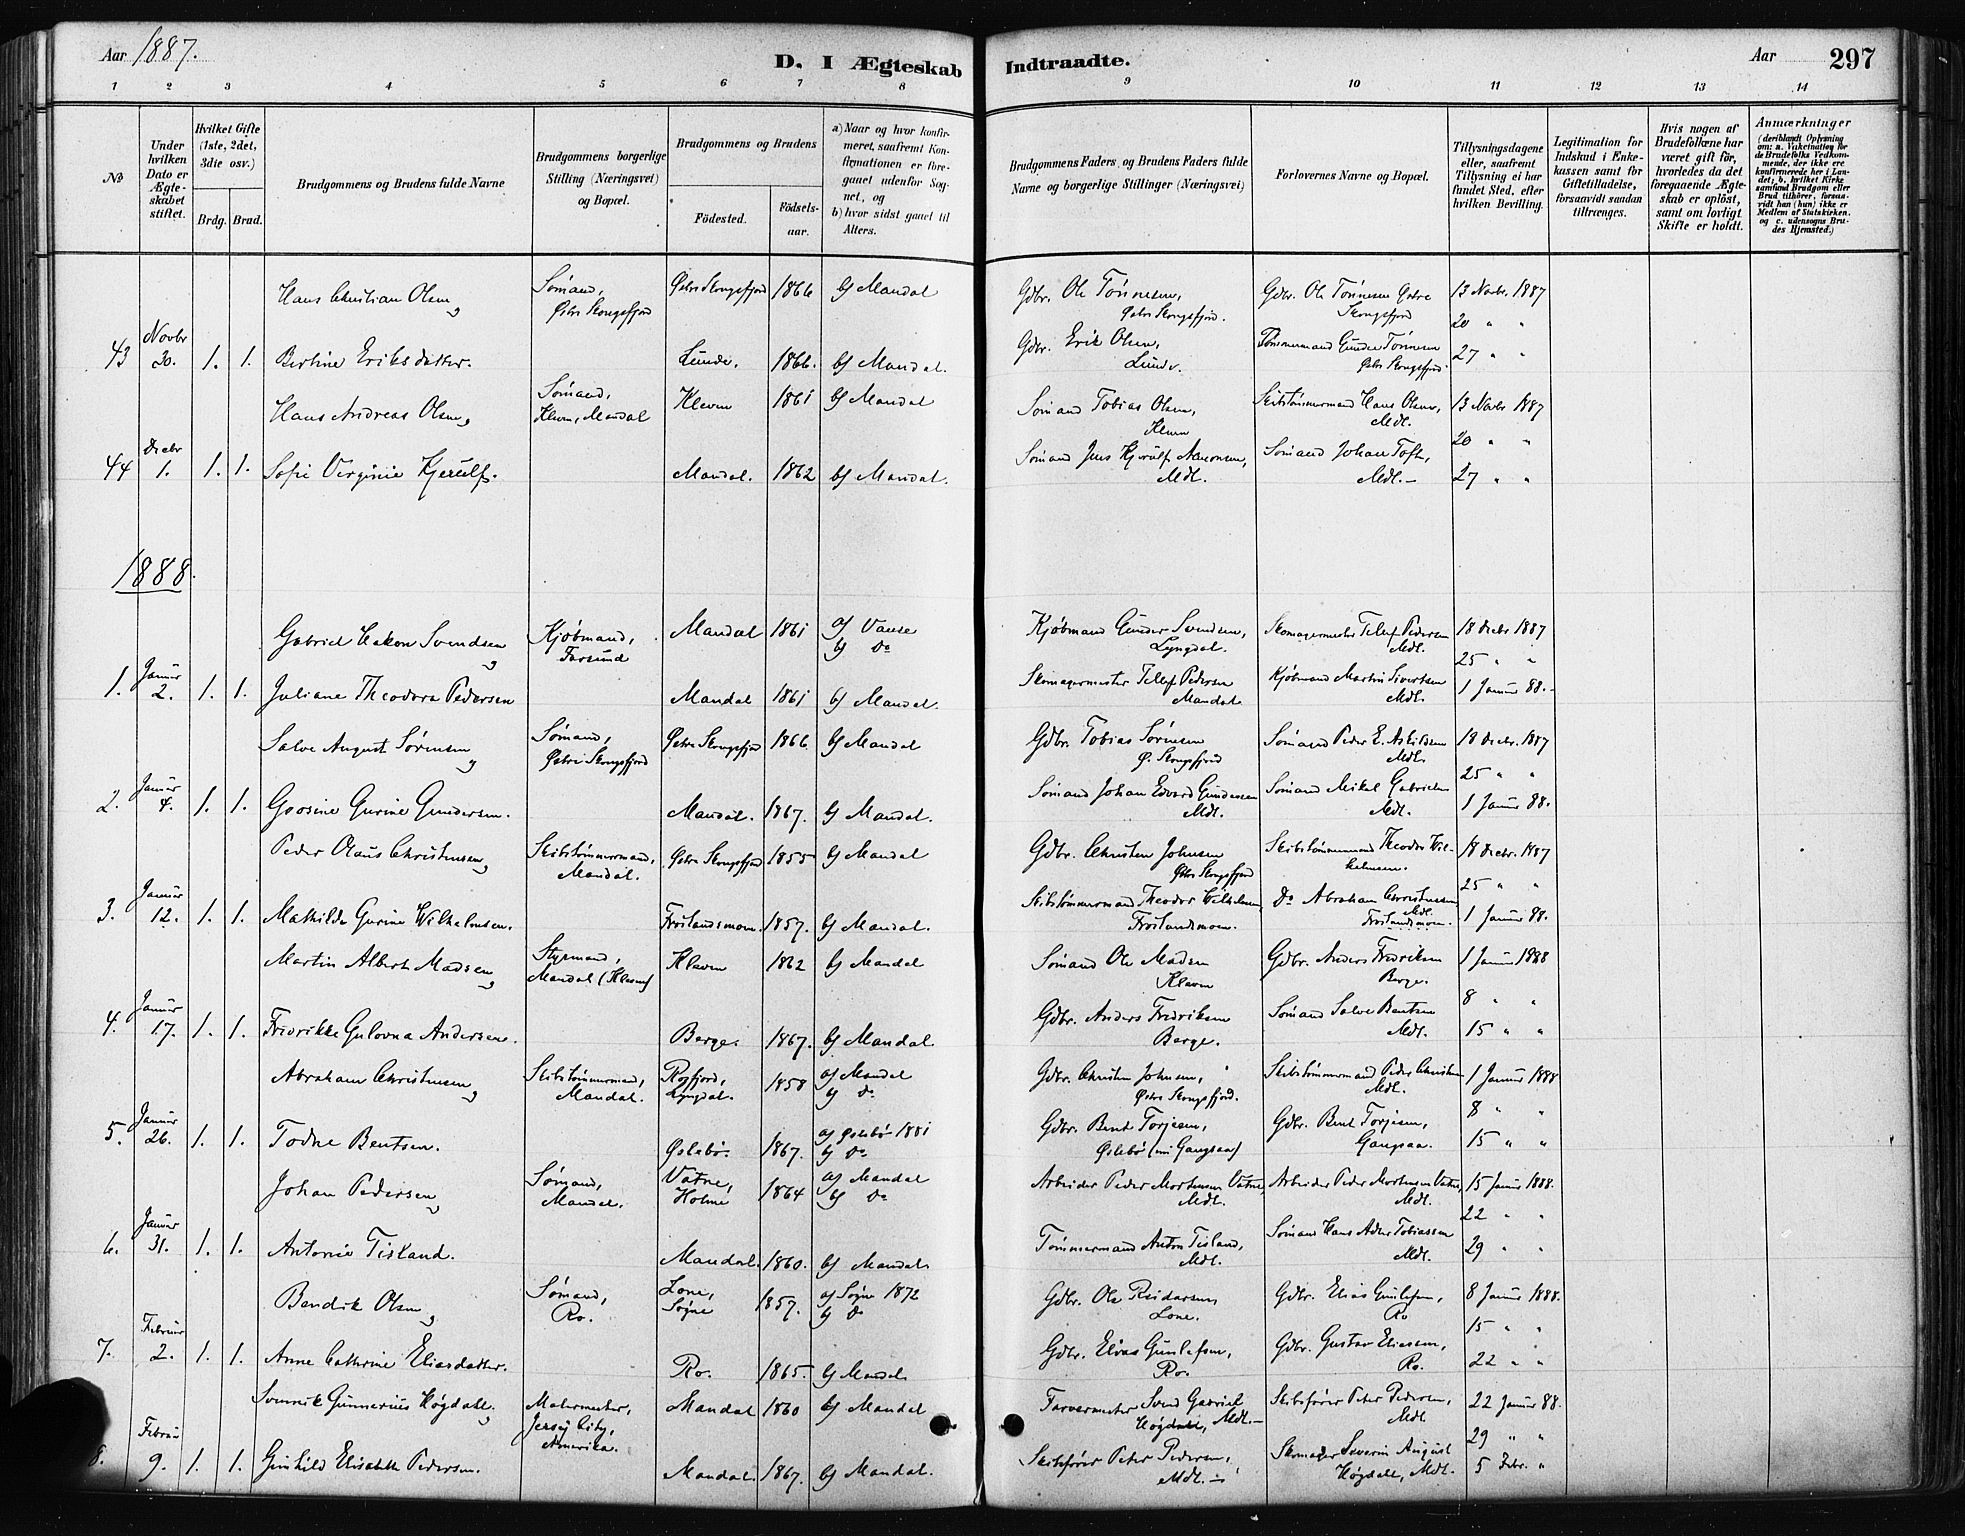 Aar 1887. D. I Ægteskab Indtraadte. Aar 297
1 2 3 4 5 6 7 8 9 10 11 12 13 14
No
Under hvilken Dato er Ægteskabet stiftet.
Hvilket Gifte (1ste, 2det, 3die osv.)
Brdg. Brud.
Brudgommens og Brudens fulde Navne
Brudgommens borgerlige Stilling (Næringsvei) og Bopæl.
Brudgommens og Brudens
Födested. Födselsaar.
a) Naar og hvor konfirmeret, saafremt Konfirmationen er foregaaet udenfor Sognet, og
b) hvor sidst gaaet til Alters.
Brudgommens Faders, og Brudens Faders fulde Navne og borgerlige Stillinger (Næringsvei)
Forlovernes Navne og Bopæl.
Tillysningsdagene eller, saafremt Tillysning ei har fundet Sted, efter hvilken Bevilling.
Legitimation for Indskud i Enkekassen samt for Giftetilladelse, forsaavidt saadan tiltrænges.
Hvis nogen af Brudefolkene har været gift før, hvorledes da det foregaaende Ægteskab er opløst, samt om lovligt Skifte er holdt.
Anmærkninger (deriblandt Oplysning om: a. Vakcination for de Brudefolks Vedkommende, der ikke ere konfirmerede her i Landet; b. hvilket Kirkesamfund Brudgom eller Brud tilhører, forsaavidt han (hun) ikke er Medlem af Statskirken. og c. udensogns Brudes Hjemsted.)
Hans Christian Olsen, Sømand, Østre Skogsfjord Østre Skogsfjord 1866 b) Mandal Gdbr. Ole Tønnesen, Østre Skogsfjord. Gdbr. Ole Tønnesen Østre Skogsfjord 13 Novbr. 1887
20 " "
43 Novbr 30. 1. 1. Bertine Eriksdatter. Lunde. 1866. b) Mandal. Gdbr. Erik Olsen, Lunde. Tømmermand Gunder Tønnesen Østre Skogsfjord. 27 " "
Hans Andreas Olsen, Sømand, Kleven, Mandal Kleven 1861 b) Mandal Sømand Tobias Olsen, Kleven Skibstømmermand Hans Olsen, Mdl. 13 Novbr 1887
20 " "
44 Decbr 1. 1. 1. Sofie Virginie Kjerulf. Mandal. 1862 b) Mandal. Sømand Jens Kjerulf Aanonsen, Mdl. Sømand Johan Toft, Mdl. 27 " "
1888.
Gabriel Hakon Svendsen, Kjøbmand, Farsund Mandal 1861 a) Vanse b) Do Kjøbmand Gunder Svendsen, Lyngdal. Skomagermester Tellef Pedersen Mdl. 18 Decbr 1887
25 " "
1. Januar 2. 1. 1. Juliane Theodora Pedersen Mandal 1861 b) Mandal. Skomagermester Tellef Pedersen Mandal. Kjøbmand Martin Sivertsen Mdl. 1 Januar 88.
Salve August Sørensen, Sømand, Østre Skogsfjord Østre Skogsfjord 1866. b) Mandal Gdbr. Tobias Sørensen Ø. Skogsfjord Sømand Peder E. Askildsen Mdl. 18 Decbr. 1887
25 " "
2. Januar 4. 1. 1. Goosine Gurine Gundersen. Mandal. 1867. b) Mandal. Sømand Johan Edvard Gundersen Mdl. Sømand Mikal Gabrielsen Mdl. 1 Januar 88.
Peder Olaus Christensen, Skibstømmermand, Mandal. Østre Skogsfjord 1855 b) Mandal Gdbr. Christen Johnsen Østre Skogsfjord Skibstømmermand Theodor Wilhelmsen. 18 Decbr. 1887
25 " "
3. Januar 12. 1. 1. Mathilde Gurine Wilhelmsen. Frøslandsmoen. 1857. b) Mandal. Skibstømmermand Theodor Wilhelmsen Frøslandsmoen. Do Abraham Christensen Mdl. Frøslandsmoen. 1 Januar 88.
Martin Albert Madsen, Styrmand, Mandal (Kleven) Kleven 1862 b) Mandal Sømand Ole Madsen Kleven Gdbr. Anders Fredriksen Berge. 1 Januar 1888
8 " "
4. Januar 17. 1. 1. Fredrikke Gulovna Andersen. Berge. 1867. b) Mandal. Gdbr. Anders Fredriksen Berge. Sømand Salve Bentsen Mdl. 15 " "
Abraham Christensen, Skibstømmermand, Mandal. Rosfjord, Lyngdal. 1858 a) Mandal b) Do. Gdbr. Christen Johnsen, Østre Skogsfjord. Skibstømmermand Peder Christensen Mdl. 1 Januar 1888
8 " "
5. Januar 26. 1. 1. Todne Bentsen. Øslebø. 1867. a) Øslebø 1881 b) Do Gdbr. Bent Torjesen, Øslebø (nu Gangsaa) Gdbr. Bent Torjesen, Gangsaa. 15 " "
Johan Pedersen, Sømand, Mandal. Vatne, Holme 1864 a) Mandal b) Do Arbeider Peder Mortensen Vatne, Mdl. Arbeider Peder Mortensen Vatne, Mdl. 15 Januar 1888.
22 " "
6. Januar 31. 1. 1. Antonie Tisland. Mandal. 1860. b) Mandal. Tømmermand Anton Tisland, Mdl. Sømand Hans Adler Tobiassen Mdl. 29 " "
Bendik Olsen, Sømand, Ro. Lone, Søgne 1857. a) Søgne 1872 b) Do Gdbr. Ole Reidarsen, Lone. Gdbr. Elias Gunlefsen, Ro 8 Januar 1888.
15 " "
7. Februar 2. 1. 1. Anne Cathrine Eliasdatter. Ro. 1865. b) Mandal. Gdbr. Elias Gunlefsen, Ro. Gdbr. Gustav Eliassen, Ro. 22 " "
Gunnerius Høgdahl, Malermester, Jersey City, Amerika. Mandal 1860 b) Mandal Farvermester Svend Gabriel Høgdahl, Mdl. Skibsfører Peter Pedersen, Mdl 22 Januar 88.
29 " "
8. Februar 9. 1. 1. Gunhild Elisabeth Pedersen. Mandal. 1867. b) Mandal. Skibsfører Peter Pedersen, Mdl. Skomager Severin August Høgdahl, Mdl. 5 Febr. "